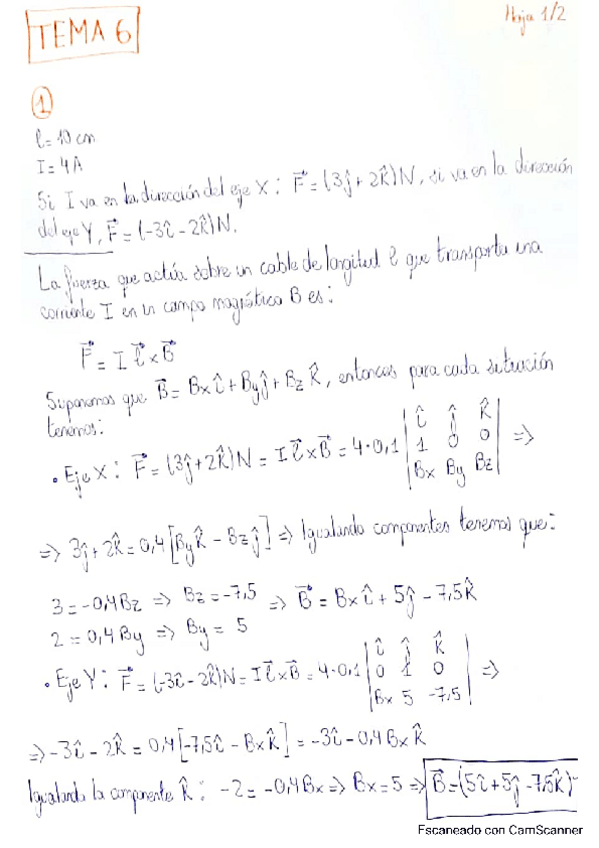 TEMA 6
Hoja 1/2
1
l = 10 cm
I = 4 A
Si I va en la dirección del eje X: F⃗ = (3ĵ + 2k̂)N, si va en la dirección
del eje Y, F⃗ = (-3î - 2k̂)N.
La fuerza que actúa sobre un cable de longitud l que transporta una
corriente I en un campo magnético B es:
F⃗ = I l⃗ × B⃗
Suponemos que B⃗ = Bx î + By ĵ + Bz k̂, entonces para cada situación
tenemos:
• Eje X: F⃗ = (3ĵ + 2k̂)N = I l⃗ × B⃗ = 4·0,1 | î ĵ k̂ | 1 0 0 | Bx By Bz | =>
=> 3ĵ + 2k̂ = 0,4 [By k̂ - Bz ĵ] => Igualando componentes tenemos que:
3 = -0,4 Bz => Bz = -7,5 => B⃗ = Bx î + 5ĵ - 7,5k̂
2 = 0,4 By => By = 5
• Eje Y: F⃗ = (-3î - 2k̂)N = I l⃗ × B⃗ = 4·0,1 | î ĵ k̂ | 0 1 0 | Bx 5 -7,5 | =>
=> -3î - 2k̂ = 0,4 [-7,5î - Bx k̂] = -3î - 0,4 Bx k̂
Igualando la componente k̂: -2 = -0,4 Bx => Bx = 5 => B⃗ = (5î + 5ĵ - 7,5k̂)
Escaneado con CamScanner